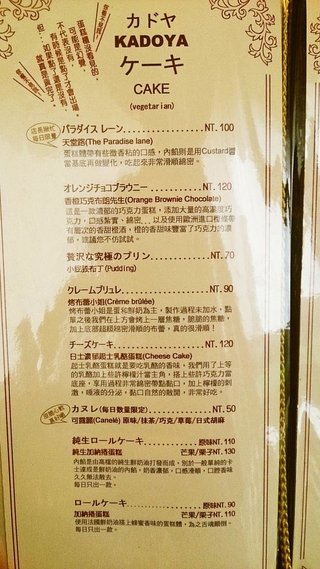 カドヤ
KADOYA
ケーキ
CAKE
(vegetarian)
店長謝忙
每日限量
パラダイス レーン...............NT. 100
天堂路(The Paradise lane)
蛋糕體帶有些微香私的口感，內餡則是用Custard醬
當基底再做變化，吃起來非常滑順綿密。
オレンジチョコブラウニー............NT. 120
香橙巧克布朗先生(Orange Brownie Chocolate)
這是一款濃郁的巧克力蛋糕，添加大量的高濃度巧
克力，口感紮實、綿密
有層次的香甜橙酒，橙的香甜味豐富了巧克力的濃
郁，建議您不仿試試。
贅沢な究極のプリン...............NT.70
小庭孩布丁(Pudding)
クレームブリュレ..................NT. 90
烤布蕾小姐(Crème brûlée)
烤布蕾小姐是蛋和鮮奶為主，製作過程未加水，點
單之後我們在上方會烤上一層焦糖，脆脆的焦糖，
加上底部超級綿密滑順的布蕾，真的很滑順！
チーズケーキ....................NT. 120
日士濃郁起士乳酪蛋糕(Cheese Cake)
起士乳酪蛋糕就是要吃乳酪的香味，我們用了上等
的乳酪加上些許檸檬汁當主角，搭上些許巧克力當
底座，享用過程非常綿密帶點黏口，加上檸檬的刺
激，唾液的分泌，黏口自然的散開，非常好吃。
カヌレ(每日数量限定)...............NT.50
可露麗(Canelé) 原味/抹茶/巧克/草莓/日式胡麻
純生ロールケーキ..........原味NT. 110
純生加納捲蛋糕 芒果/栗子NT. 130
內餡是由高檔的純生鮮奶油打發而成，別於一般單純的卡
士達或是鮮奶油的內餡，奶香濃郁，口感滑順，口腔香味
久久無法散去。
每日只出一款。
ロールケーキ.............原味NT. 90
加納捲蛋糕 芒果/栗子NT. 110
使用法國鮮奶油搭上蜂蜜香味的蛋糕體，為之古魂顛倒。
每日只出一款。